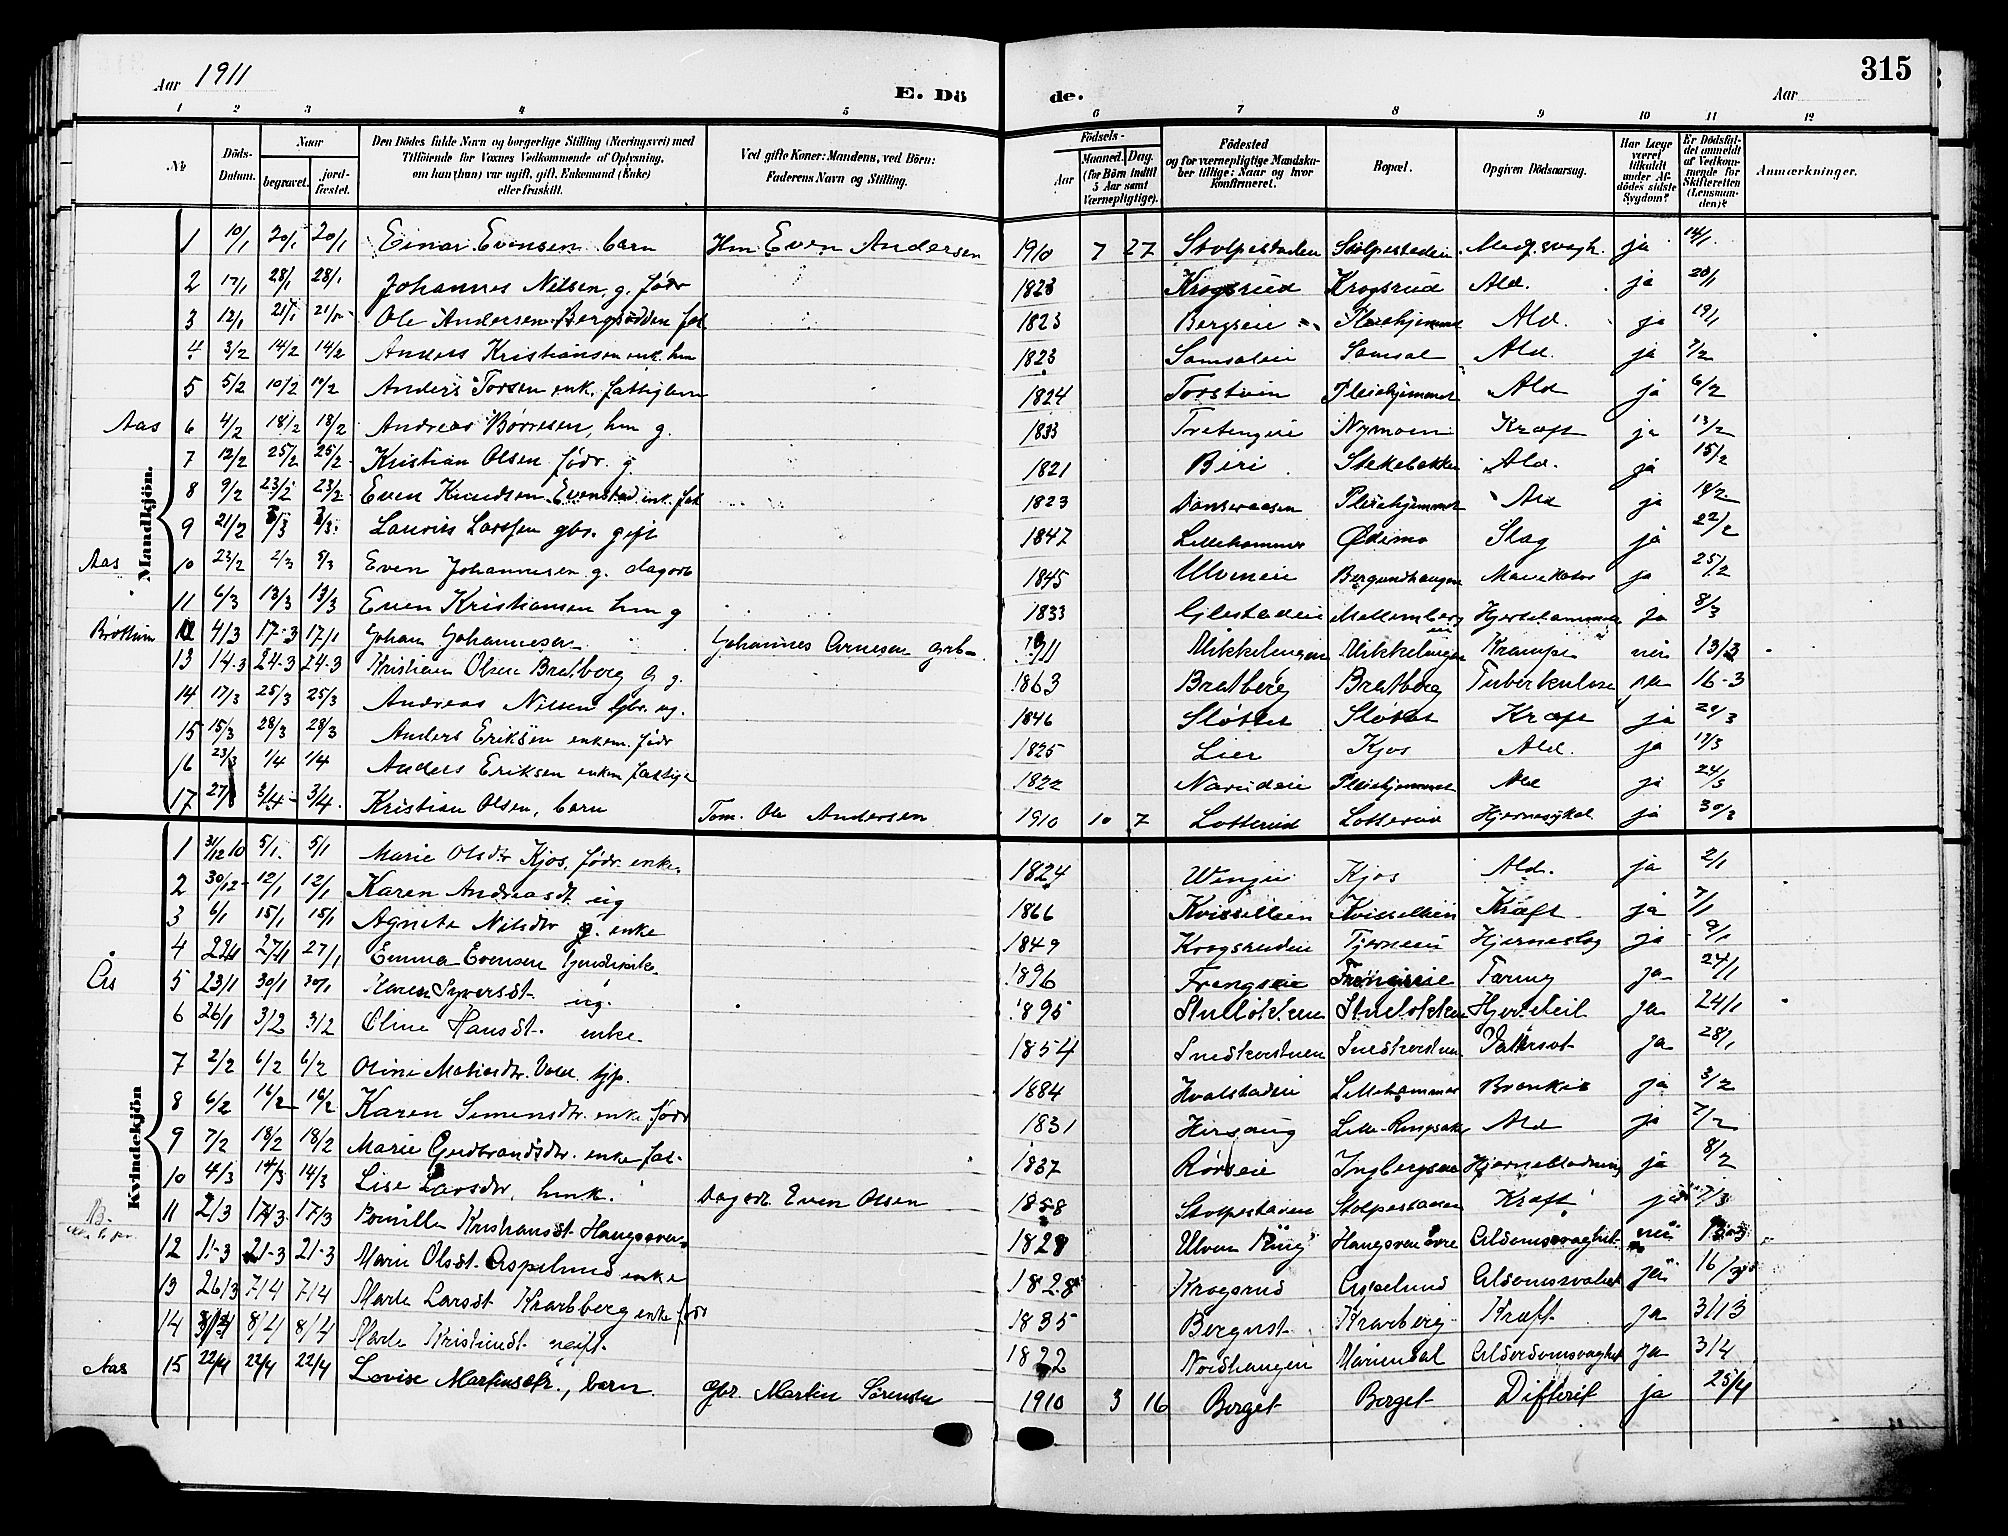 Aar 1911
E. Dö de.
315
Aar
1 2 3 4 5 6 7 8 9 10 11 12
№
Döds-Datum.
Naar
begravet.
jord-fæstet.
Den Dödes fulde Navn og borgerlige Stilling (Næringsvei) med Tilföiende for Voxnes Vedkommende af Oplysning, om hun (hun) var ugift, gift, Enkemand (Enke) eller fraskilt.
Ved gifte Koner: Mandens, ved Börn: Faderens Navn og Stilling.
Födsels-
Aar
Maaned. Dag. (for Börn indtil 5 Aar samt Værnepligtige).
Födested og for værnepligtige Mandskaber tillige: Naar og hvor konfirmeret.
Bopæl.
Opgiven Dödsaarsag.
Har Læge været tilkaldt under Afdödes sidste Sygdom?
Er Dödsfaldet anmeldt af Vedkommende for Skifteretten (Lensmanden)?
Anmærkninger.
Mandkjön.
1 10/1 20/1 20/1 Einar Evensen barn Hm Even Andersen 1910 7 27 Stolpestaden Stolpestadeie Medf. svagh. ja 14/1
2 17/1 28/1 28/1 Johannes Nilsen g. födr 1823 Krogsrud Krogsrud Ald. ja 20/1
3 12/1 21/1 Ole Andersen Bergsodden fat 1823 Bergseie Pleiehjemmet Ald. ja 19/1
4 3/2 14/2 14/2 Anders Kristiansen enk. hm 1823 Samsaleie Samsal Ald. ja 7/2
5 5/2 10/2 10/2 Anders Torsen enk. fattiglem 1824 Torstuen Pleiehjemmet Ald ja 6/2
Aas 6 4/2 18/2 18/2 Andreas Börresen, hm g. 1833 Tretengeie Nymoen Kræft ja 13/2
7 12/2 25/2 25/2 Kristian Olsen födr. g. 1821 Biri Stekebakke Ald. ja 15/2
8 9/2 23/2 23/2 Even Knudsen Evenstad enk. fat 1823 Danseraasen Pleiehjemmet Ald ja 14/2
9 21/2 3/3 3/3 Laurits Larssen gbr. gift 1847 Lillehammer Ødemo Slag ja 22/2
Aas 10 23/2 2/3 5/3 Even Johannesen g. dagarb 1845 Ulveneie Bergundhaugen Mavekatar ja 25/2
11 6/3 13/3 13/3 Even Kristiansen hm g 1833 Gjestadeie Mellemberg eie Hjertelammelse ja 8/3
Bröttum 12 4/3 17-3 17/1 Johan Johannesen Johannes Arnesen grb 1911 Mikkelengen Mikkelengen Krampe nei 13/3
13 14-3 24-3 24-3 Kristian Olsen Bratberg G g. 1863 Bratberg Bratberg Tuberkulose ja 16-3
14 17/3 25/3 25/3 Andreas Nilsen gbr. ug. 1846 Slöttet Slöttet Kræft ja 20/3
15 15/3 28/3 28/3 Anders Eriksen enkem. födr 1825 Lier Kjos Ald. ja 17/3
16 23/3 1/4 1/4 Anders Eriksen enkem fattigl 1822 Narudeie Pleiehjemmet Ald ja 24/3
17 27/3 3/4 3/4 Kristian Olsen, barn Tom. Ole Andersen 1910 10 7 Lotterud Lotterud Hjernesykd ja 30/3
Kvindekjön
1 31/12 10 5/1 5/1 Marie Olsdtr Kjos, födr. enke. 1824 Wengeie Kjos Ald. ja 2/1
2 30/12 12/1 12/1 Karen Andreasdt ug 1866 Kvisselleien Kvisselleien Kræft ja 7/1
3 6/1 15/1 15/1 Agnete Nilsdtr g. enke 1849 Krogsrudeie Tjerneeie Hjerneslag ja 9/1
Ås 4 22/1 27/1 27/1 Emma Evensen tjenstpike 1896 Frengseie Frengseie Tæring ja 24/1
5 23/1 30/1 30/1 Karen Syversdt. ug. 1895 Stulökken Stulökken Hjertefeil ja 24/1
6 26/1 3/2 3/2 Oline Hansdt. enke. 1854 Snedkerstuen Snedkerstuen Vattersot ja 28/1
7 2/2 6/2 6/2 Oline Matiasdtr. Vold tjp. 1884 Hvalstadeie Lillehammer Bronkis ja 3/2
8 6/2 16/2 16/2 Karen Simensdtr. enke födr 1831 Hirsaug Lille-Ringsaker Ald ja 7/2
9 7/2 18/2 18/2 Marie Gudbrandsdtr. enke fat. 1837 Rörseie Ingbergseie Hjerneblödning ja 8/2
10 4/3 14/3 14/3 Lise Larsdtr, hmk. Dagarb. Even Olsen 1858 Stolpestaden Stolpestaden Kræft ja 7/3
11 2/3 17/3 17/3 Pernille Kristiansdt Haugsveen 1828 Ulven Ring Haugsveen övre Alderdomssvaghet nei 13/3
12 11-3 21-3 21-3 Marie Olsdt. Aspelund enke 1828 Krogsrud Aspelund Alderdomssvaghet ja 16/3
13 26/3 7/4 7/4 Marte Larsdt Kvarberg enke födr 1835 Bergust. Kvarberg Kræft ja 31/3
14 8/4 8/4 Marte Kristiansdt ugift. 1822 Nordhaugen Mariendal Alderdomssvaghet ja 3/4
Aas 15 22/4 22/4 22/4 Lovise Martinsdtr., barn Gbr. Martin Sörensen 1910 3 16 Berget Berget Difterit ja 25/4